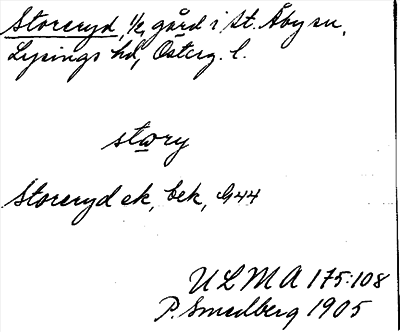 Storeryd, 1/2 gård i St. Åby sn,
Lysings hd, Österg. l.
stωry
Storeryd ek, bek, G44
ULMA 175:108
P. Smedberg 1905